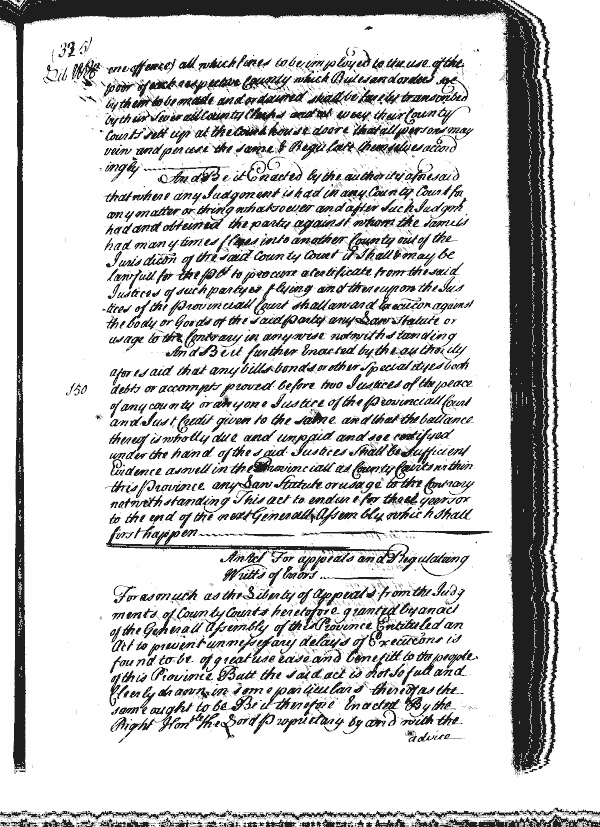 (325)
Lib WH&L
one offence) all which fines to be imployed to the use of the
poor of each respective County which Rules and orders are
by them to be made and ordained shall be fairely transcribed
by their severall County Clerks and at every their County
Courts sett up at the Court house doore that all persons may
veiw and peruse the same & Regulate themselves accord
ingly
And Be it Enacted by the authority aforesaid
that where any Judgment is had in any County Court for
any matter or thing whatsoever and after such Judgmt
had and obteined the party against whom the same is
had many times flyes into another County out of the
Jurisdicon of the said County Court it shall & may be
lawfull for the plt to procure a certificate from the said
Justices of such partyes flying and thereupon the Jus
tices of the Provinciall Court shall award Execucon against
the body or Goods of the said party any Law Statute or
usage to the Contrary in any wise notwithstanding
And Be it further Enacted by the authority
150
aforesaid that any bills bonds or other Specialtyes book
debts or accompts proved before two Justices of the peace
of any county or any one Justice of the Provinciall Court
and Just Credit given to the same and that the ballance
thereof is wholly due and unpaid and soe certifyed
under the hand of the said Justices shall be sufficient
Evidence as well in the Provinciall as County Courts within
this Province any Law Statute or usage to the Contrary
notwithstanding This act to endure for three years or
to the end of the next Generall Assembly which shall
first happen
An Act For appeals and Regulating
Writts of Errors
Forasmuch as the Liberty of Appeals from the Judg
ments of County Courts heretofore granted by an act
of the Generall Assembly of this Province Entituled an
Act to prevent unnecessary delays of Execucons is
found to be of great use ease and benefitt to the people
of this Province Butt the said act is not so full and
Cleerly drawn in some particulars thereof as the
same ought to be Be it therefore Enacted By the
Right Honble the Lord Proprietary by and with the
advice